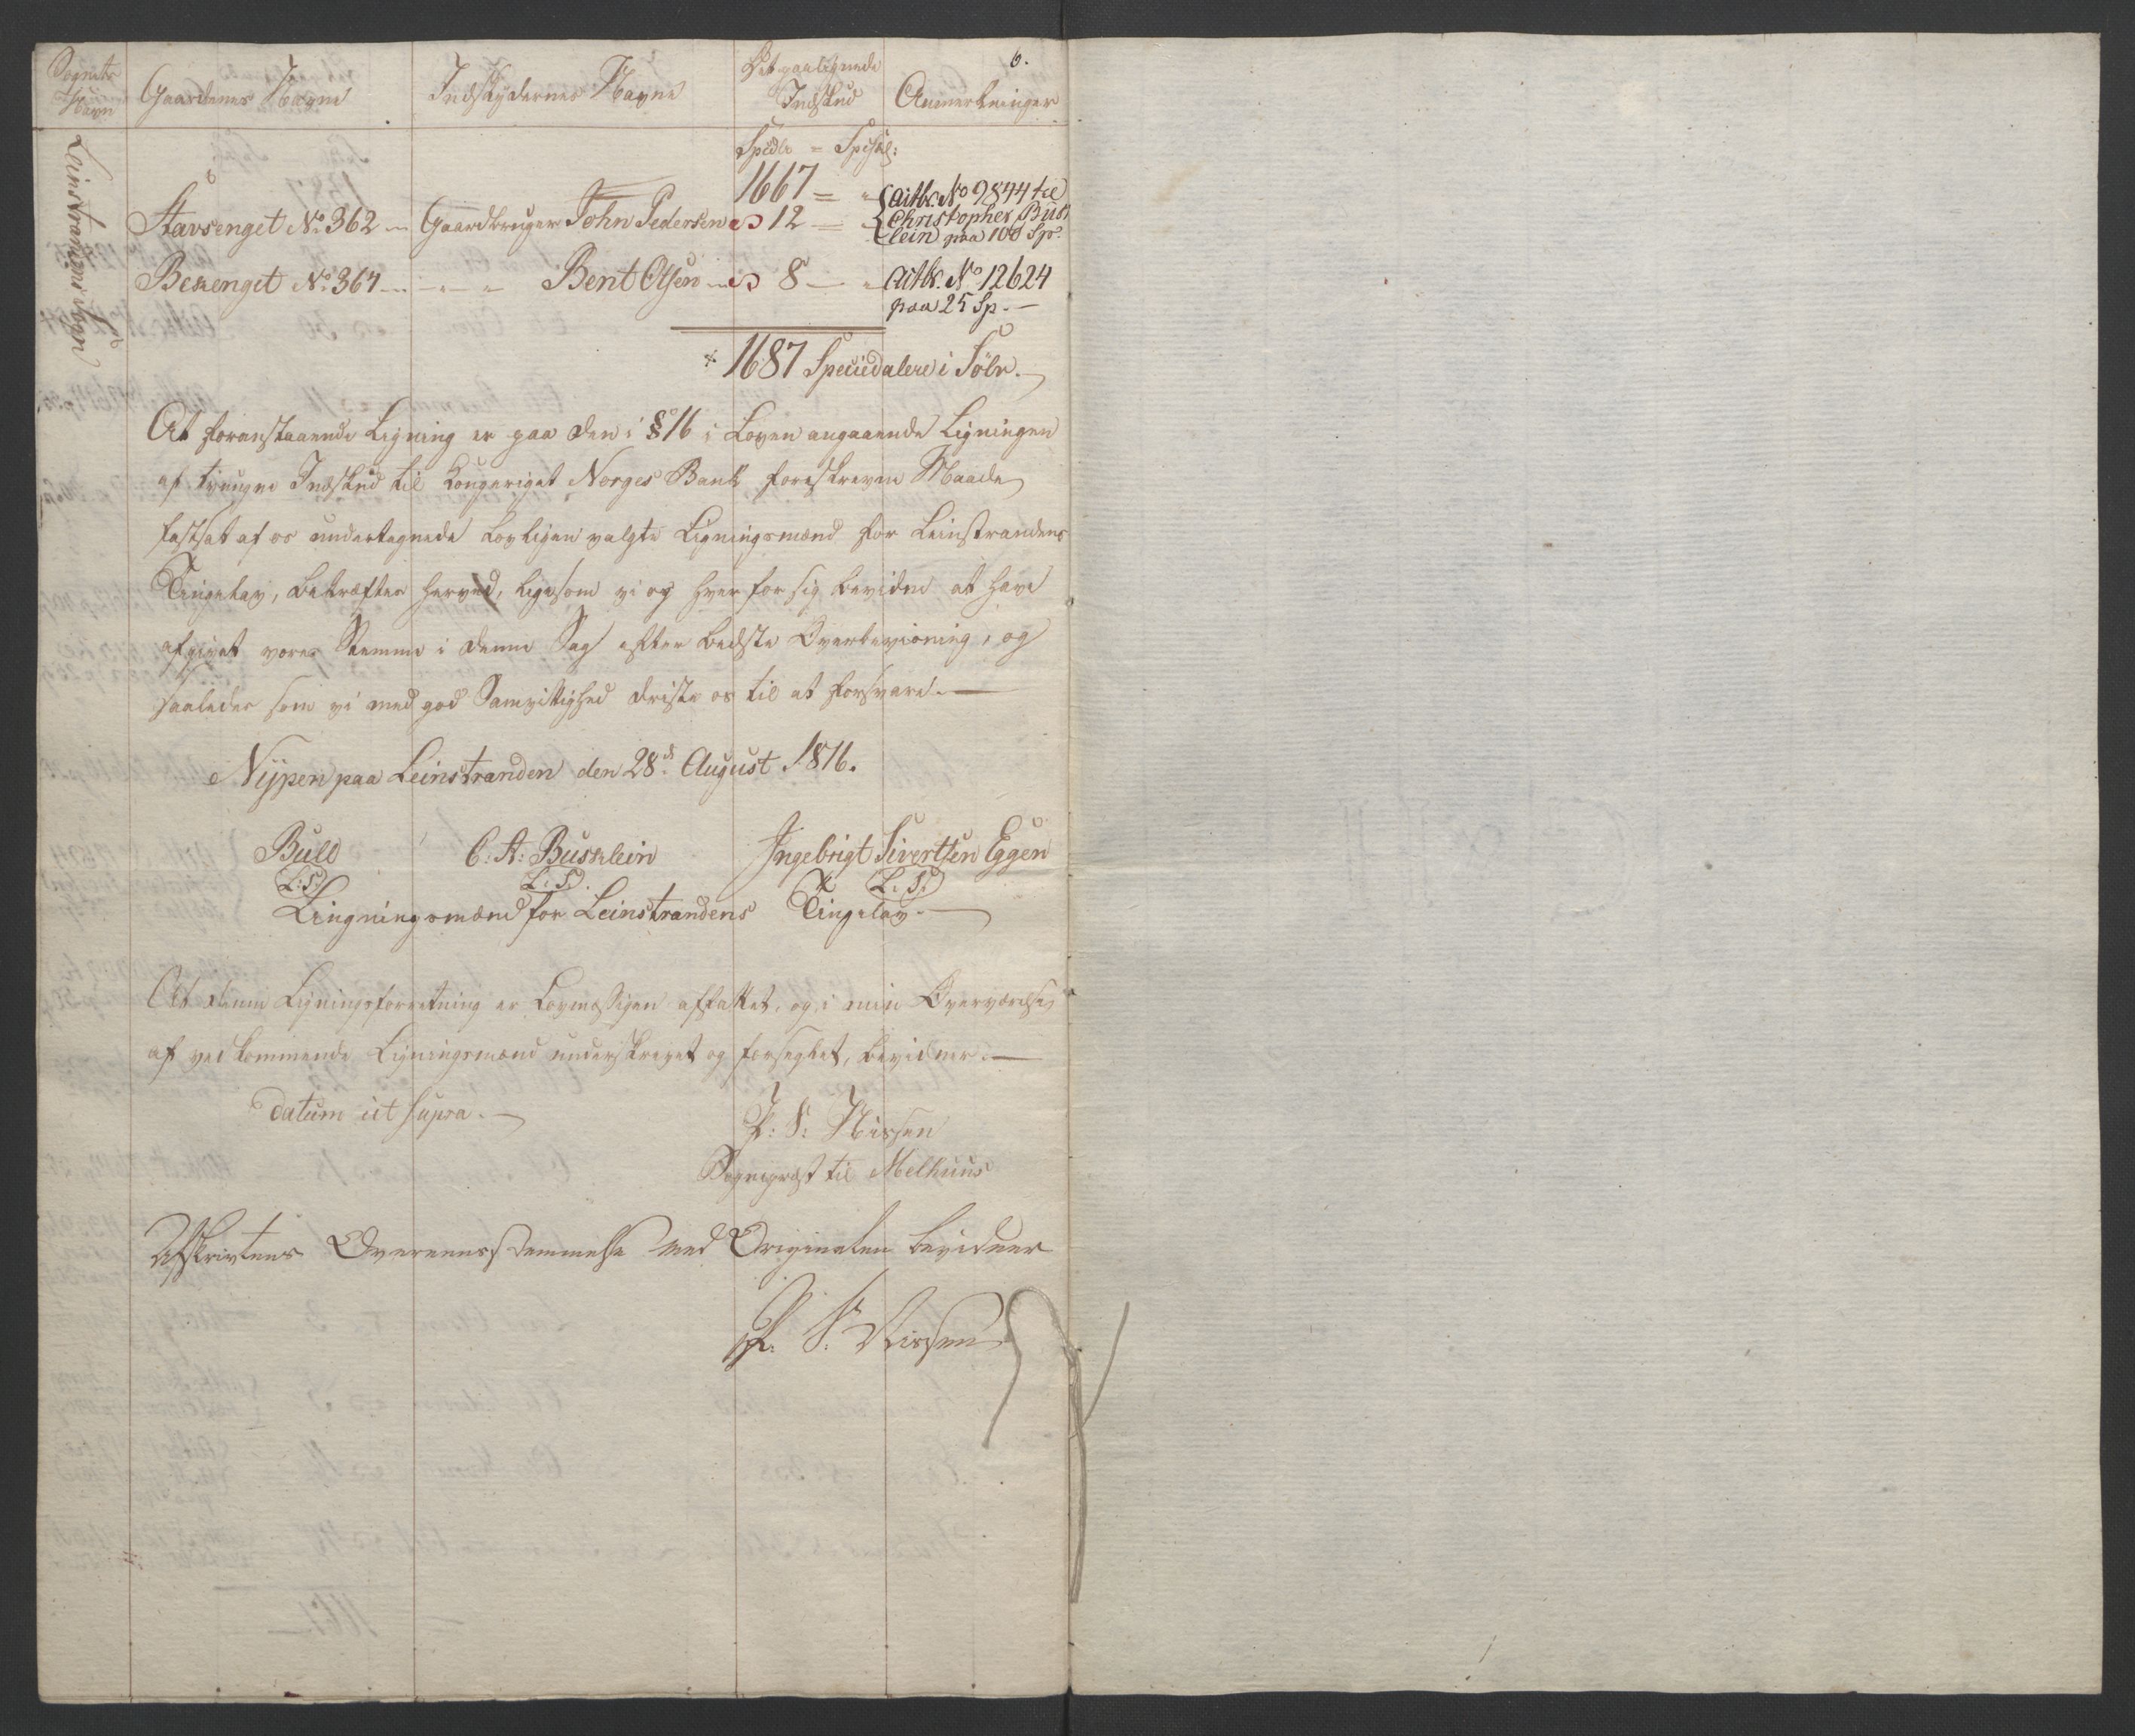 6.
Sognets Navn
Gaardenes Navne
Indskydernes Navne
Det paalignede Indskud
Anmerkninger
Leinstrandens Sogn
Spdlr =
1667 =
Stavsenget No 362 Gaardbruger John Pedersen 12 — Actb. No 9844 til Christopher Busklein paa 100 Sp.
Bekenget No 364 — " — Bent Olsen 8 — Actb. No 12624 paa 25 Sp. —
1687 Speciedalere i Sölv. —
At foranstaaende Ligning er paa den i § 16 i Loven angaaende Ligningen
af tvungne Indskud til Kongeriget Norges Bank foreskrevne Maade
fastsat af os undertegnede lovligen valgte Ligningsmænd for Leinstrandens
Tingelav, bekræftes herved, ligesom vi og hver for sig bevidne at have
afgivet vores Stemme i denne Sag efter bedste Overbeviisning, og
saaledes som vi med god Samvittighed driste os til at forsvare. —
Nypen paa Leinstranden den 28d August 1816.
Bull C: A: Busklein Ingebrigt Sivertsen Eggen
L:S: L:S. L.S.
Lingningsmænd for Leinstrandens Tingelav. —
At denne Ligningsforretning er Lovmæssigen affattet, og i min Overværelse
af vedkommende Ligningsmænd underskrevet og forseglet, bevidner. —
datum ut supra. —
P: S: Nissen
Sognepræst til Melhuus
Afskrivtens Overeensstemmelse med Originalen bevidner
P. S: Nissen